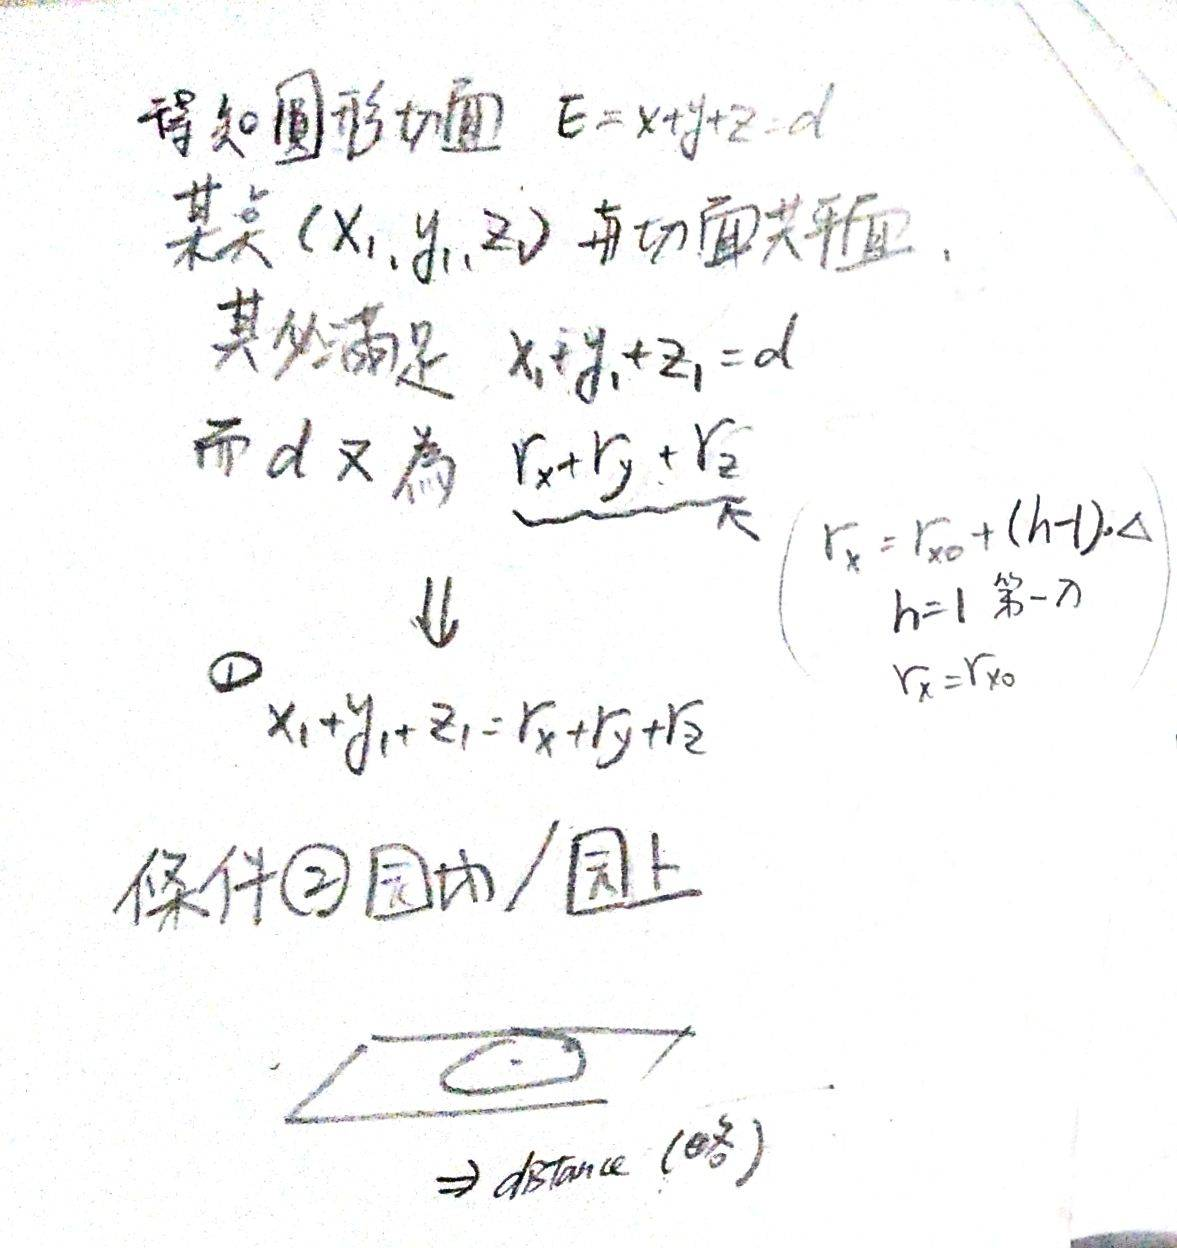 得知圓形切面 E=x+y+z=d
某点(x₁,y₁,z₁)再切面共平面,
其必滿足 x₁+y₁+z₁=d
而d又為 rx+ry+rz
(rx=rx0+(h-1)·△
h=1 第一刀
rx=rx0)
⇓
① x₁+y₁+z₁=rx+ry+rz
條件②园内/园上
⇒ distance (略)